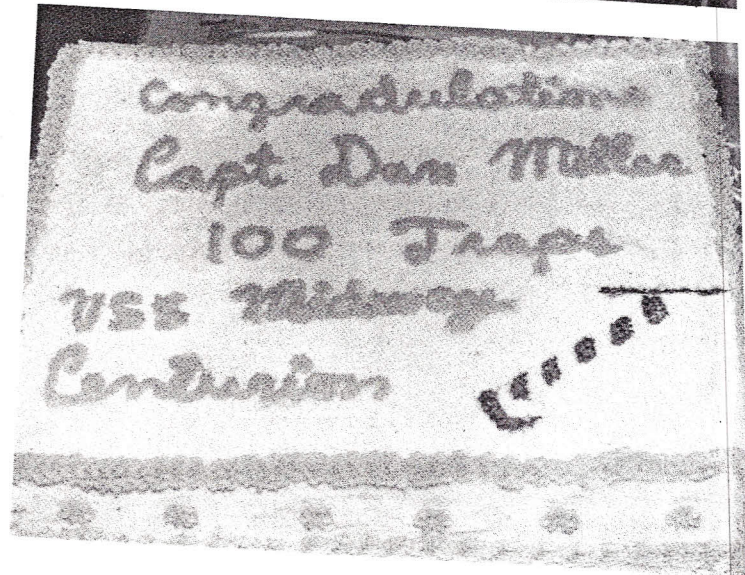 Congradulations
Capt Dan Miller
100 Traps
USS Midway
Centurions